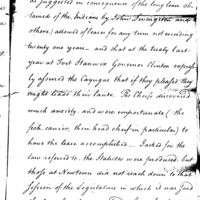 as suggested in consequence of the long lease ob-
tained of the Indians by John Livingston and
others) allowed of lease for any term not exceeding
twenty one years — and that at the treaty last
year at Fort Stanwix Governor Clinton express-
ly assured the Cayugas that if they pleased they
might lease their lands. The Chiefs discovered
much anxiety, and were importunate (the
fish carrier, their head chief in particular) to
have the lease accomplished — I asked for the
law referred to, the Statutes were produced but
those at Newtown did not reach down to that
Session of the Legislature in which it was said